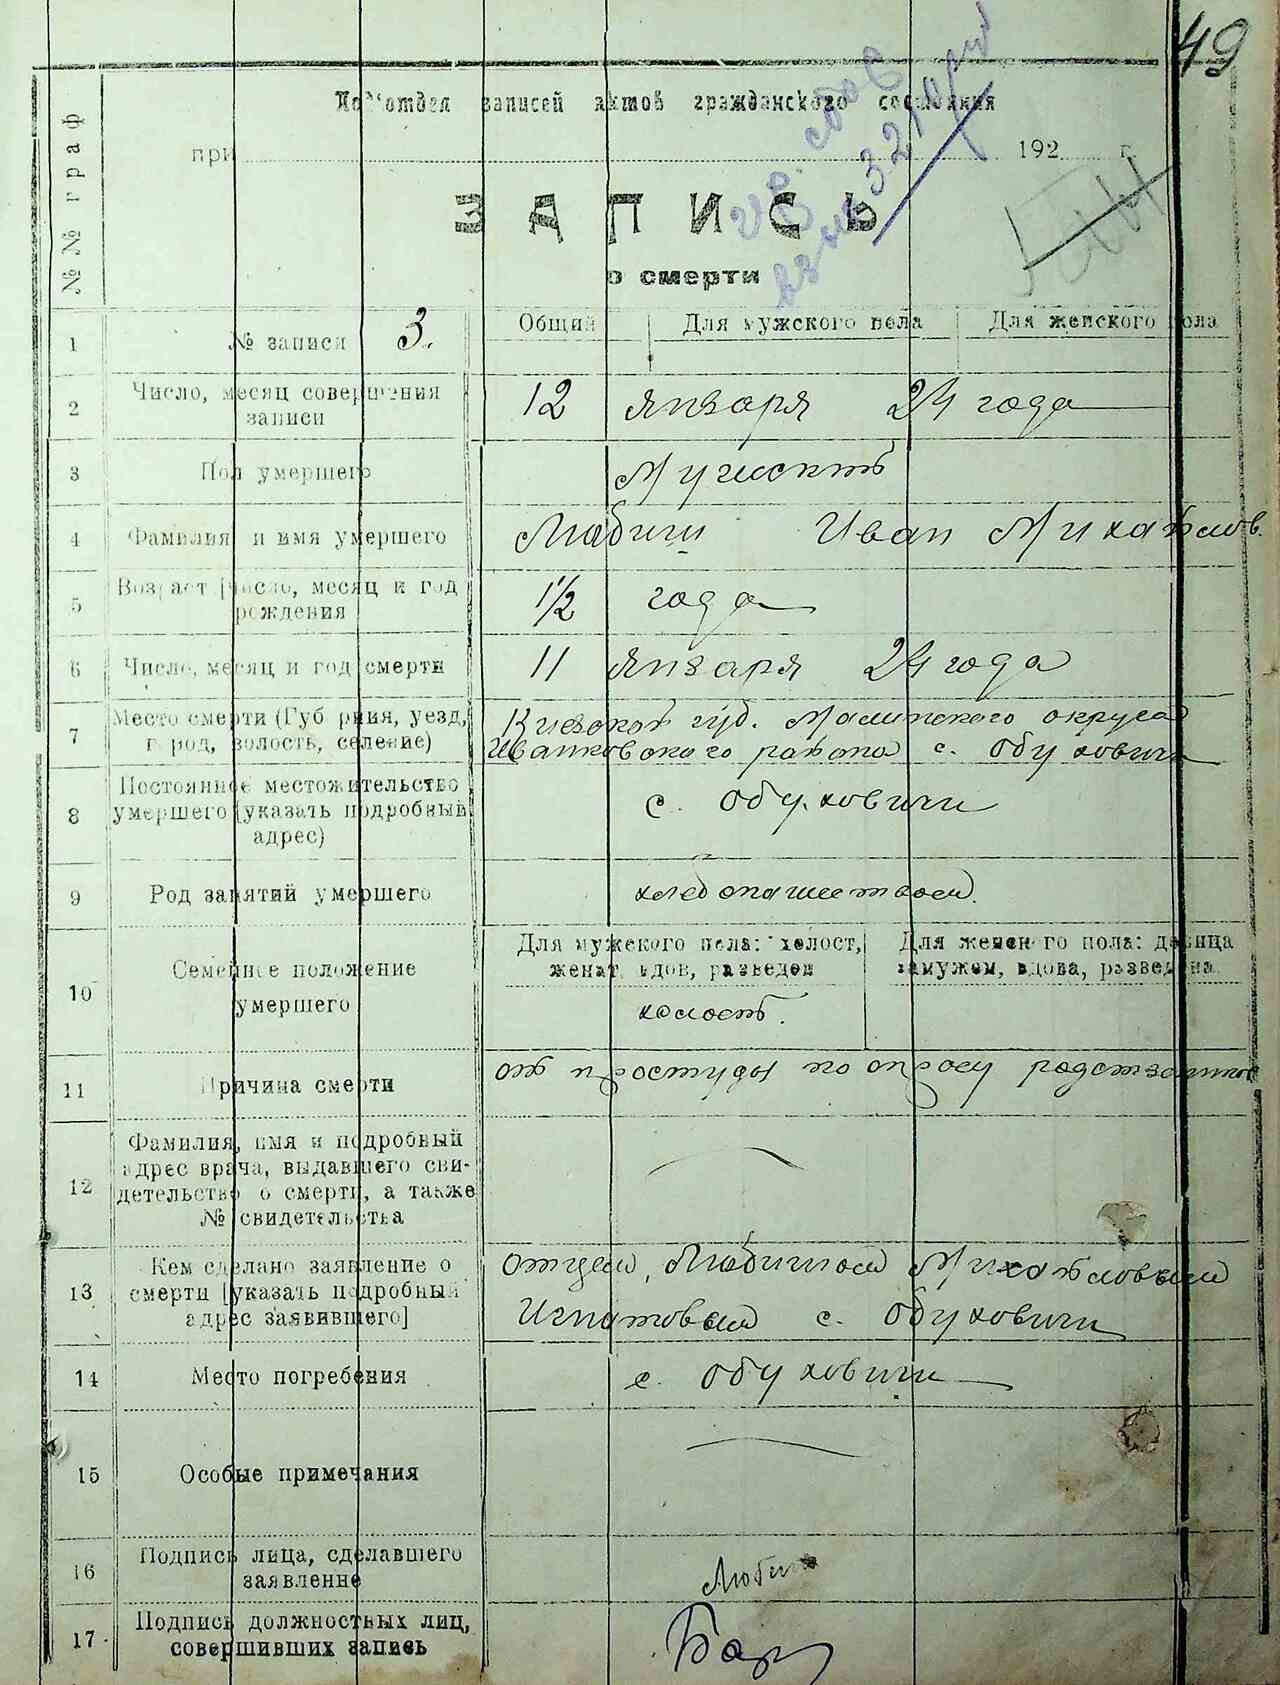 49
Под'отдел записей актов гражданского состояния
при 192 г.
№№ граф
ЗАПИСЬ
о смерти
1 № записи 3. Общий Для мужского пола Для женского пола
2 Число, месяц совершения записи 12 января 24 года
3 Пол умершего Мужскитѣ
4 Фамилия и имя умершего Любич Иван Михайлов.
5 Возраст [число, месяц и год рождения 1½ года
6 Число, месяц и год смерти 11 января 24 года
7 Место смерти (Губерния, уезд, город, волость, селение) Киевской губ. Малинского округа
Иванковского района с. Обуховичи
8 Постоянное местожительство умершего (указать подробный адрес) с. Обуховичи
9 Род занятий умершего хлебопашеством.
10 Семейное положение умершего
Для мужского пола: холост, женат, вдов, разведен
Для женского пола: девица замужем, вдова, разведена
холостъ.
11 Причина смерти от простуды по опросу родственников
12 Фамилия, имя и подробный адрес врача, выдавшего свидетельство о смерти, а также № свидетельства
13 Кем сделано заявление о смерти [указать подробный адрес заявившего] отцем, Любичом Михайловым
Игнатовым с. Обуховичи
14 Место погребения с. Обуховичи
15 Особые примечания
16 Подпись лица, сделавшего заявление Любич
17 Подпись должностных лиц, совершивших запись